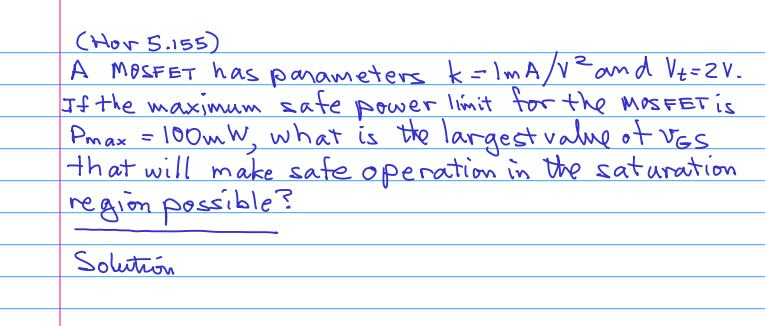 (Hor 5.155)
A MOSFET has parameters k = 1mA/V² and Vt=2V.
If the maximum safe power limit for the MOSFET is
Pmax = 100mW, what is the largest value of vGS
that will make safe operation in the saturation
region possible?
Solution